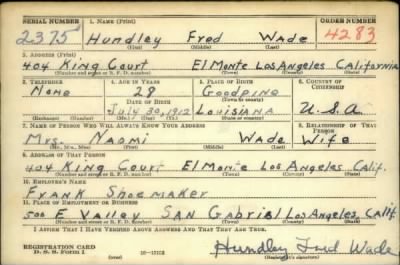 SERIAL NUMBER 1. NAME (Print) ORDER NUMBER
2375 Hundley Fred Wade 4283
(First) (Middle) (Last)
2. ADDRESS (Print)
404 King Court El Monte Los Angeles California
(Number and street or R. F. D. number) (Town) (County) (State)
3. TELEPHONE 4. AGE IN YEARS 5. PLACE OF BIRTH 6. COUNTRY OF CITIZENSHIP
None 28 Goodpine
DATE OF BIRTH (Town or county)
July 30, 1912 Louisiana U.S.A
(Exchange) (Number) (Mo.) (Day) (Yr.) (State or country)
7. NAME OF PERSON WHO WILL ALWAYS KNOW YOUR ADDRESS 8. RELATIONSHIP OF THAT PERSON
Mrs. Naomi Wade Wife
(Mr., Mrs., Miss) (First) (Middle) (Last)
9. ADDRESS OF THAT PERSON
404 King Court El Monte Los Angeles Calif.
(Number and street or R. F. D. number) (Town) (County) (State)
10. EMPLOYER'S NAME
Frank Shoemaker
11. PLACE OF EMPLOYMENT OR BUSINESS
500 E Valley San Gabriel Los Angeles, Calif
(Number and street or R. F. D. number) (Town) (County) (State)
I AFFIRM THAT I HAVE VERIFIED ABOVE ANSWERS AND THAT THEY ARE TRUE.
REGISTRATION CARD
D. S. S. Form 1 Hundley Fred Wade
(Registrant's signature)